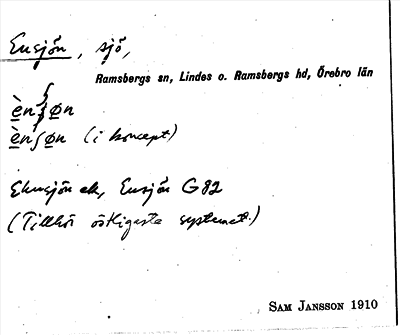 Ensjön, sjö,
Ramsbergs sn, Lindes o. Ramsbergs hd, Örebro län
ènʃøn
ènʃøn (i koncept)
Ensjön G82
(Tillhör östligaste systemet.)
SAM JANSSON 1910